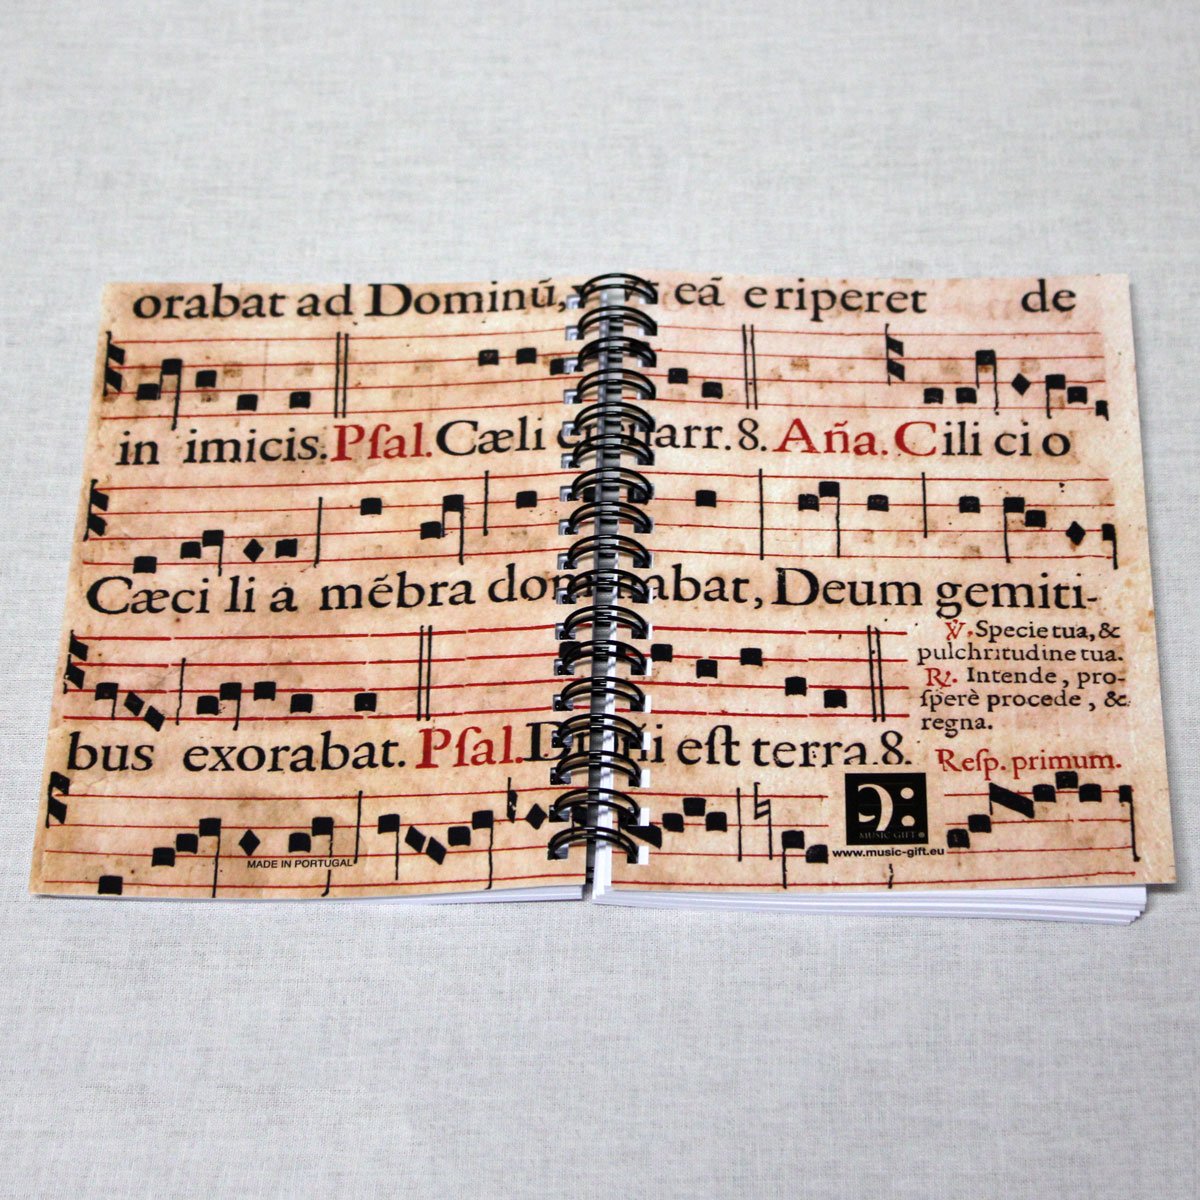 orabat ad Dominũ, eã eriperet de
in imicis. Pſal. Cæli narr. 8. Aña. Cili ci o
Cæci li a mẽbra dom abat, Deum gemiti-
℣. Specie tua, &
pulchritudine tua.
℟. Intende, pro-
ſperè procede, &
regna.
bus exorabat. Pſal. Dñi eſt terra. 8.
Reſp. primum.
MUSIC GIFT
MADE IN PORTUGAL
www.music-gift.eu